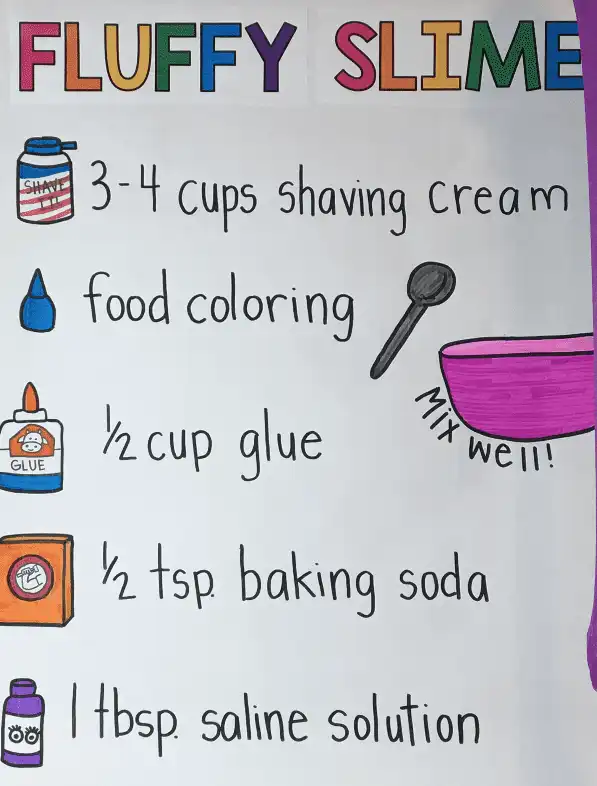 FLUFFY SLIME
SHAVE
IT!
3-4 cups shaving cream
food coloring
Mix well!
GLUE
1/2 cup glue
1/2 tsp. baking soda
1 tbsp. saline solution